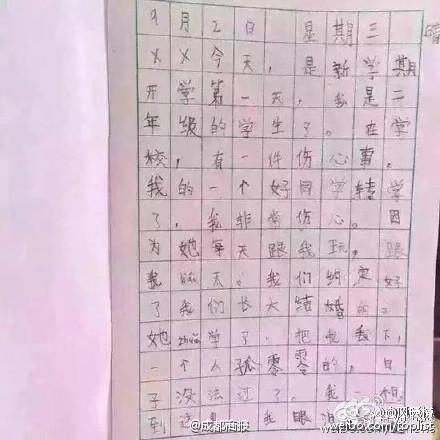 9月2日 星期三 晴
××今天，是新学期
开学第一天，我是二
年级的学生了。在学
校，有一件伤心事。
我的一个好同学转学
了，我非常伤心。因
为她每天跟我玩，跟
我聊天。我们约定好
了我们长大结婚的。
她zhuǎn学了，把我丢下，
一个人孤零零的，日
子没法过了。我一想
到这里，我眼泪
@成都商报
weibo.com/toplist